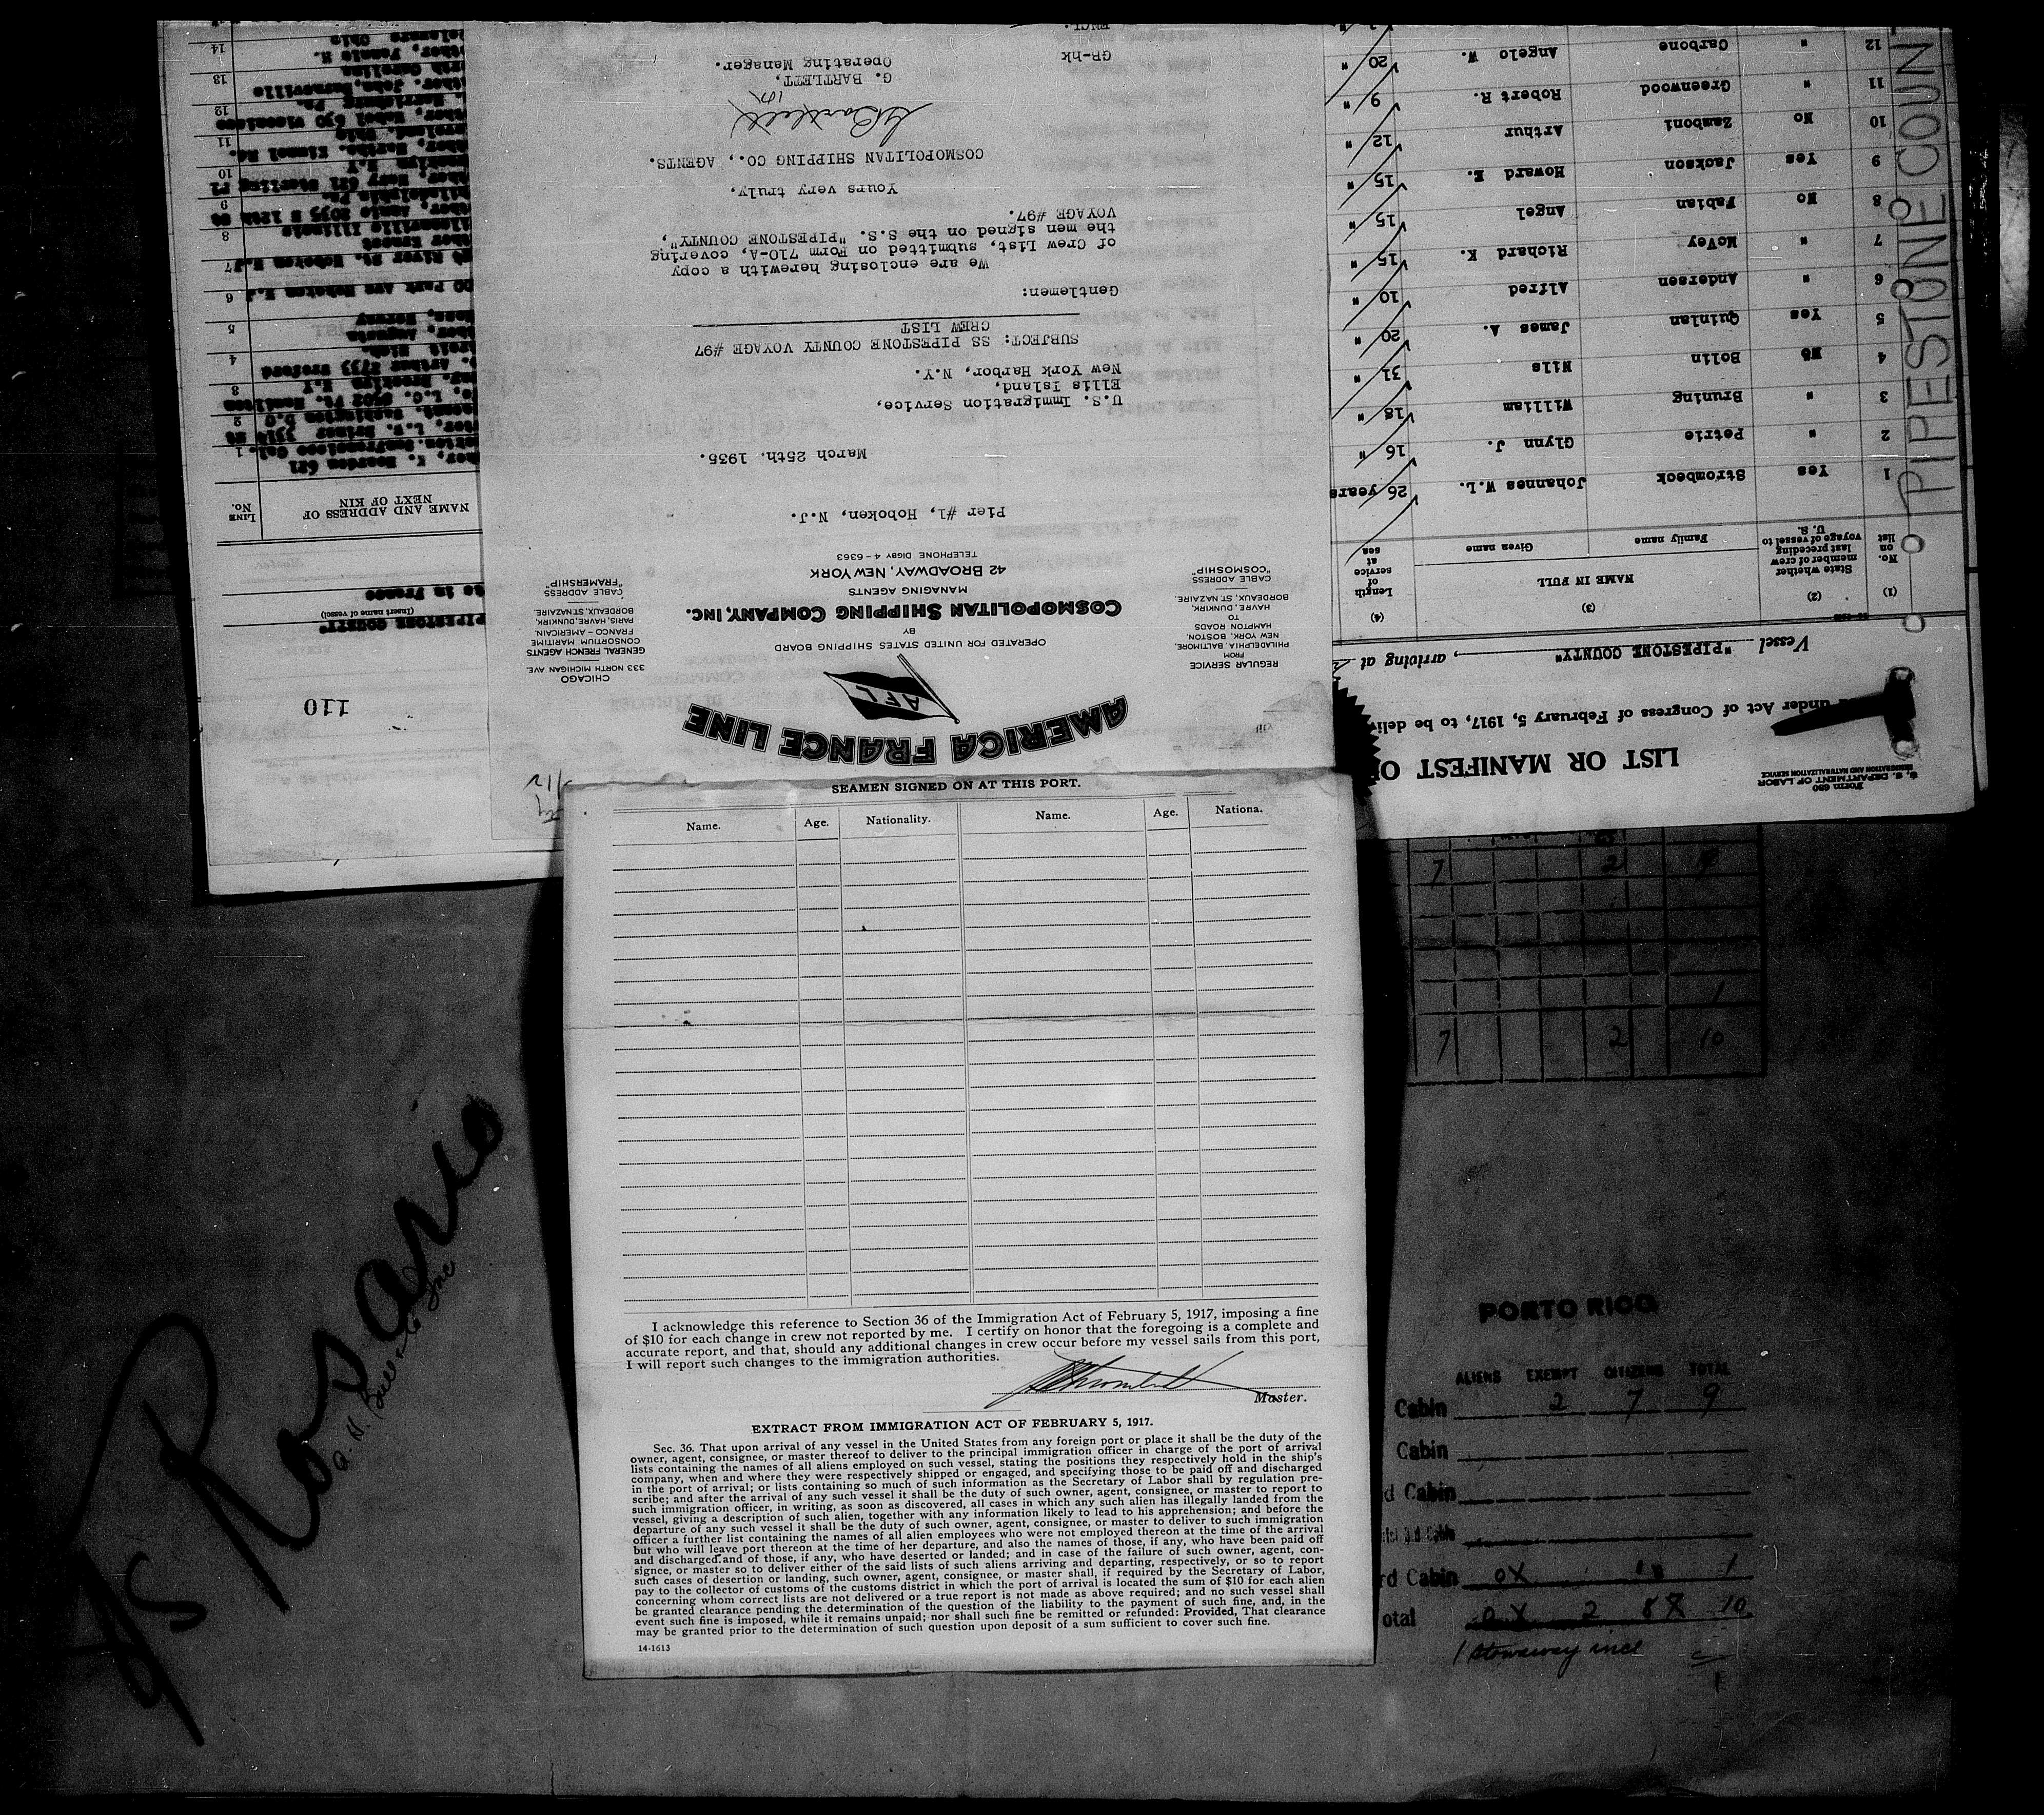 AMERICA FRANCE LINE
AFL
REGULAR SERVICE
FROM
PHILADELPHIA, BALTIMORE,
NEW YORK, BOSTON,
HAMPTON ROADS
TO
HAVRE, DUNKIRK,
BORDEAUX, ST. NAZAIRE.
CABLE ADDRESS
"COSMOSHIP"
OPERATED FOR UNITED STATES SHIPPING BOARD
BY
COSMOPOLITAN SHIPPING COMPANY, INC.
MANAGING AGENTS
42 BROADWAY, NEW YORK
TELEPHONE DIGBY 4-6363
CHICAGO
333 NORTH MICHIGAN AVE.
GENERAL FRENCH AGENTS
CONSORTIUM MARITIME
FRANCO-AMERICAIN.
PARIS, HAVRE, DUNKIRK,
BORDEAUX, ST. NAZAIRE.
CABLE ADDRESS
"FRAMERSHIP"
Pier #1, Hoboken, N.J.
March 25th. 1935.
U.S. Immigration Service,
Ellis Island,
New York Harbor, N.Y.
SUBJECT: SS PIPESTONE COUNTY VOYAGE #97
CREW LIST
Gentlemen:
We are enclosing herewith a copy
of Crew List, submitted on Form 710-A, covering
the men signed on the S.S. "PIPESTONE COUNTY",
VOYAGE #97.
Yours very truly,
COSMOPOLITAN SHIPPING CO., AGENTS.
G Bartlett
G. BARTLETT,
Operating Manager.
GB-hk
ENCL.
Form 680
U. S. DEPARTMENT OF LABOR
IMMIGRATION AND NATURALIZATION SERVICE
LIST OR MANIFEST O
under Act of Congress of February 5, 1917, to be deli
Vessel "PIPESTONE COUNTY", arriving at
(1) (2) (3) (4)
No. on list
State whether member of crew last preceding voyage of vessel to U. S.
NAME IN FULL
Family name Given name
Length of service at sea
1 Yes Strombeck Johannes W.L. 26 years
2 " Petrie Glynn J. 16 "
3 " Bruning William 18 "
4 No Bolin Nils 31 "
5 Yes Quinlan James A. 20 "
6 " Andersen Alfred 10 "
7 " McVey Richard K. 15 "
8 No Fabian Angel 15 "
9 Yes Jackson Howard E. 15 "
10 No Zamboni Arthur 12 "
11 " Greenwood Robert R. 9 "
12 " Carbone Angelo W. 20 "
PIPESTONE COUN
110
"PIPESTONE COUNTY"
(Insert name of vessel)
in France
LINE No.
NAME AND ADDRESS OF
NEXT OF KIN
1
2
3
4
5
6
7
8
9
10
11
12
13
14
SEAMEN SIGNED ON AT THIS PORT.
Name. Age. Nationality. Name. Age. Nationa.
I acknowledge this reference to Section 36 of the Immigration Act of February 5, 1917, imposing a fine
of $10 for each change in crew not reported by me. I certify on honor that the foregoing is a complete and
accurate report, and that, should any additional changes in crew occur before my vessel sails from this port,
I will report such changes to the immigration authorities.
Master.
EXTRACT FROM IMMIGRATION ACT OF FEBRUARY 5, 1917.
Sec. 36. That upon arrival of any vessel in the United States from any foreign port or place it shall be the duty of the
owner, agent, consignee, or master thereof to deliver to the principal immigration officer in charge of the port of arrival
lists containing the names of all aliens employed on such vessel, stating the positions they respectively hold in the ship's
company, when and where they were respectively shipped or engaged, and specifying those to be paid off and discharged
in the port of arrival; or lists containing so much of such information as the Secretary of Labor shall by regulation pre-
scribe; and after the arrival of any such vessel it shall be the duty of such owner, agent, consignee, or master to report to
such immigration officer, in writing, as soon as discovered, all cases in which any such alien has illegally landed from the
vessel, giving a description of such alien, together with any information likely to lead to his apprehension; and before the
departure of any such vessel it shall be the duty of such owner, agent, consignee, or master to deliver to such immigration
officer a further list containing the names of all alien employees who were not employed thereon at the time of the arrival
but who will leave port thereon at the time of her departure, and also the names of those, if any, who have been paid off
and discharged and of those, if any, who have deserted or landed; and in case of the failure of such owner, agent, con-
signee, or master so to deliver either of the said lists of such aliens arriving and departing, respectively, or so to report
such cases of desertion or landing, such owner, agent, consignee, or master shall, if required by the Secretary of Labor,
pay to the collector of customs of the customs district in which the port of arrival is located the sum of $10 for each alien
concerning whom correct lists are not delivered or a true report is not made as above required; and no such vessel shall
be granted clearance pending the determination of the question of the liability to the payment of such fine, and, in the
event such fine is imposed, while it remains unpaid; nor shall such fine be remitted or refunded: Provided, That clearance
may be granted prior to the determination of such question upon deposit of a sum sufficient to cover such fine.
14-1613
SS Rosario
7 2 9
1
7 2 10
PORTO RICO
ALIENS EXEMPT CITIZENS TOTAL
Cabin 2 7 9
Cabin
rd Cabin
rd Cabin 0X 1
otal 0X 2 8X 10
1 stowaway incl